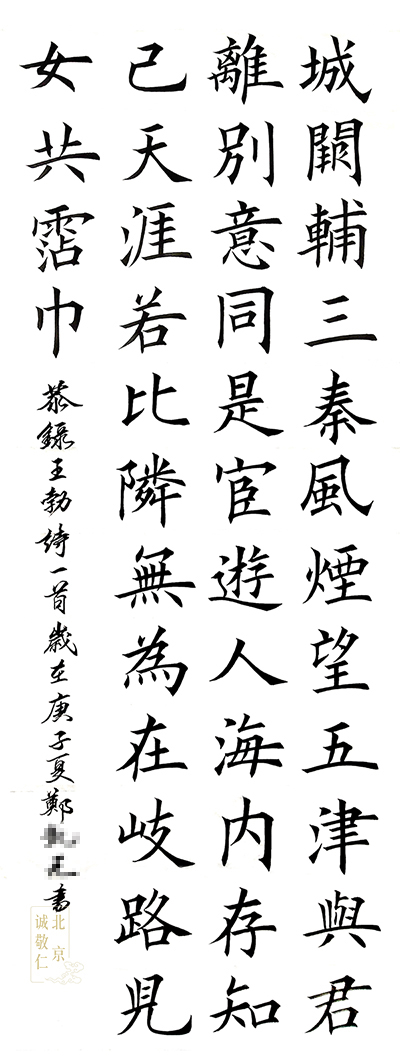 城闕輔三秦風煙望五津與君
離別意同是宦遊人海内存知
己天涯若比隣無為在岐路児
女共霑巾
恭錄王勃詩一首歲在庚子夏鄭書
北京
诚敬仁